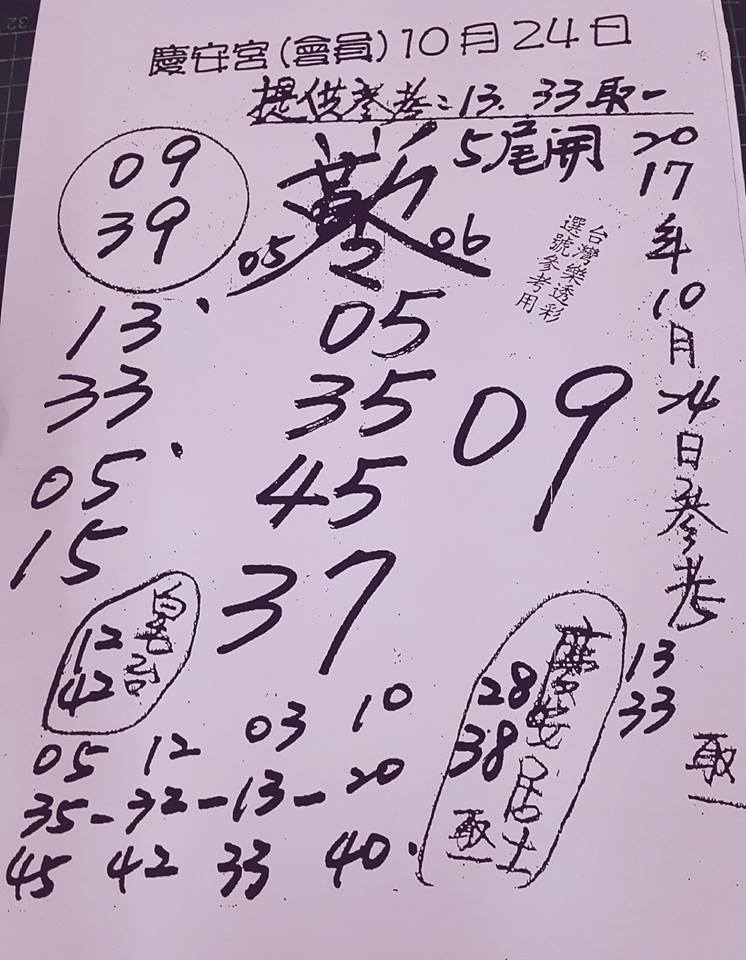 慶安宮(會員)10月24日
提供參考:13.33取一
5尾開
2017年10月24日參考
13
33
取一
09
39
05 2 06
台灣樂透彩
選號參考用
13
33
05
15
05
35
45
09
37
12
42
慶安居士
28
38
取一
05 12 03 10
35-32-13-20
45 42 33 40